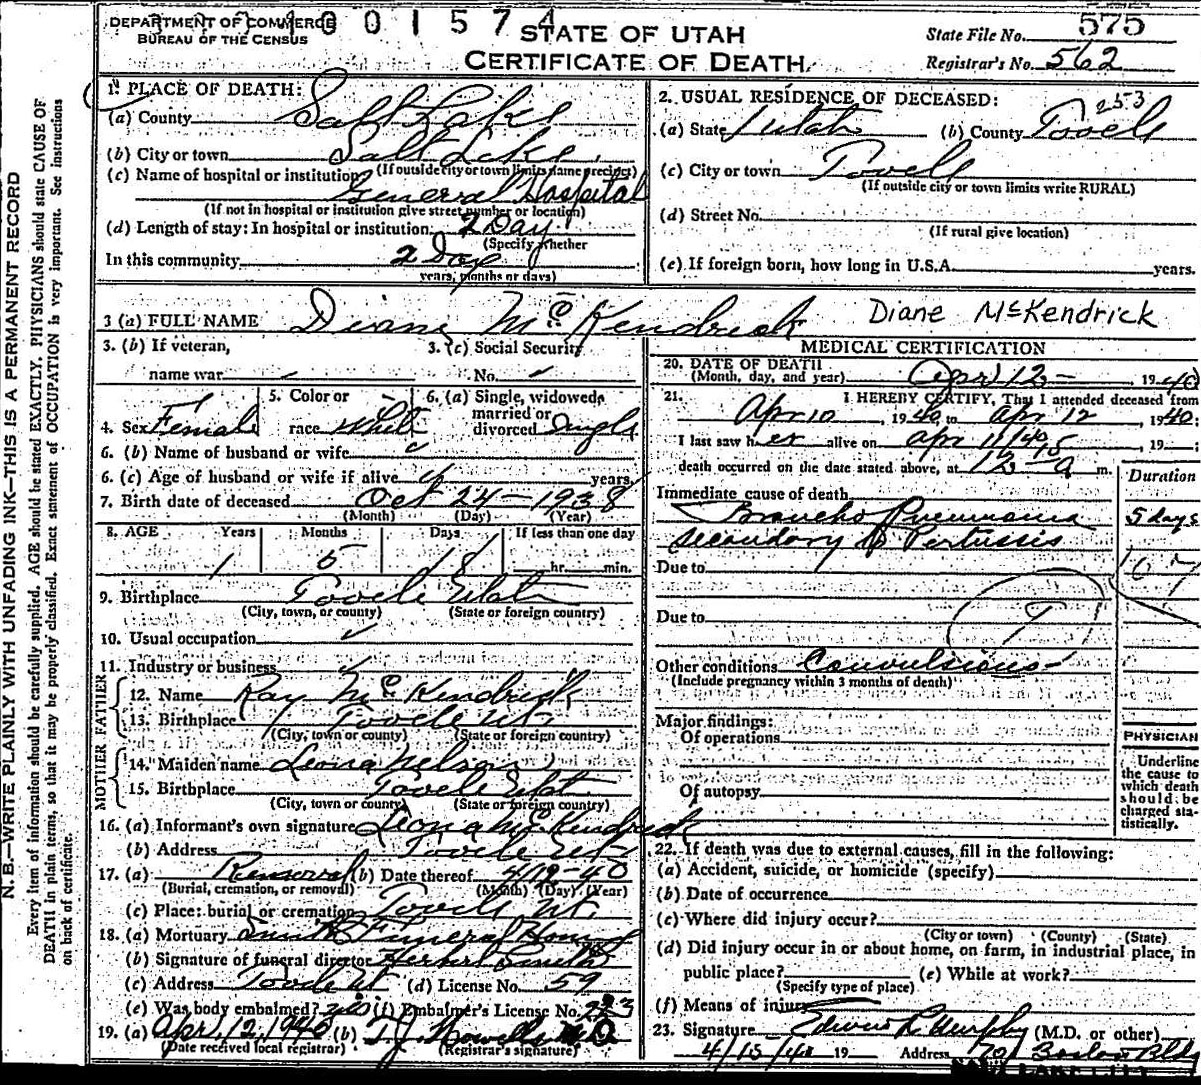 DEPARTMENT OF COMMERCE
BUREAU OF THE CENSUS
1001574
STATE OF UTAH
CERTIFICATE OF DEATH
State File No. 575
Registrar's No. 562
N. B.—WRITE PLAINLY WITH UNFADING INK—THIS IS A PERMANENT RECORD
Every item of information should be carefully supplied. AGE should be stated EXACTLY. PHYSICIANS should state CAUSE OF
DEATH in plain terms, so that it may be properly classified. Exact statement of OCCUPATION is very important. See instructions
on back of certificate.
1. PLACE OF DEATH:
(a) County Salt Lake
(b) City or town Salt Lake
(If outside city or town limits name precinct)
(c) Name of hospital or institution
General Hospital
(If not in hospital or institution give street number or location)
(d) Length of stay: In hospital or institution 2 Day
(Specify whether
In this community 2 Day
years, months or days)
2. USUAL RESIDENCE OF DECEASED:
253
(a) State Utah (b) County Tooele
(c) City or town Tooele
(If outside city or town limits write RURAL)
(d) Street No.
(If rural give location)
(e) If foreign born, how long in U.S.A. years.
3 (a) FULL NAME Diane McKendrick Diane McKendrick
3. (b) If veteran, 3. (c) Social Security
name war - No.
4. Sex Female
5. Color or
race White
6. (a) Single, widowed,
married or
divorced Single
6. (b) Name of husband or wife
6. (c) Age of husband or wife if alive years
7. Birth date of deceased Oct 24 - 1938
(Month) (Day) (Year)
8. AGE Years Months Days If less than one day
1 5 18 hr. min.
9. Birthplace Tooele Utah
(City, town, or county) (State or foreign country)
10. Usual occupation
11. Industry or business
FATHER
12. Name Ray McKendrick
13. Birthplace Tooele Ut.
(City, town or county) (State or foreign country)
MOTHER
14. Maiden name Leona Nelson
15. Birthplace Tooele Utah
(City, town or county) (State or foreign country)
16. (a) Informant's own signature Leona McKendrick
(b) Address Tooele Ut
17. (a) Removal (b) Date thereof 4/12-40
(Burial, cremation, or removal) (Month) (Day) (Year)
(c) Place: burial or cremation Tooele Ut.
18. (a) Mortuary Smith Funeral Home
(b) Signature of funeral director Herbert Smith
(c) Address Tooele Ut (d) License No. 59
(e) Was body embalmed? yes (f) Embalmer's License No. 223
19. (a) Apr. 12, 1940 (b) T. J. Howells M D
(Date received local registrar) (Registrar's signature)
MEDICAL CERTIFICATION
20. DATE OF DEATH
(Month, day, and year) Apr 12 - 1940
21. I HEREBY CERTIFY, That I attended deceased from
Apr 10, 1940, to Apr 12, 1940;
I last saw her alive on Apr 11/40, 19
death occurred on the date stated above, at a m.
Duration
Immediate cause of death
Broncho Pneumonia 5 days
secondary to Pertussis
Due to
107
Due to
Other conditions Convulsions
(Include pregnancy within 3 months of death)
Major findings:
Of operations
Of autopsy
PHYSICIAN
Underline
the cause to
which death
should be
charged sta-
tistically.
22. If death was due to external causes, fill in the following:
(a) Accident, suicide, or homicide (specify)
(b) Date of occurrence
(c) Where did injury occur?
(City or town) (County) (State)
(d) Did injury occur in or about home, on farm, in industrial place, in
public place? (e) While at work?
(Specify type of place)
(f) Means of injury
23. Signature Edwin R. Murphy (M.D. or other)
4/15/40 19 Address 701 Boston Bldg
SALT LAKE CITY